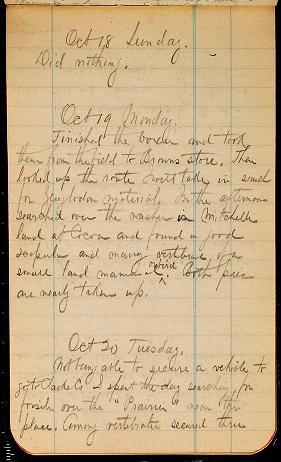 Oct 18 Sunday.
Did nothing.
Oct 19 Monday.
Finished the boxes and took
them from the field to Browns store. Then
looked up the route to take in search
for Zeuglodon material. In the afternoon
searched over the washes in Mitchells
land at Cocoa and found a good
scapula and many vertebrae of a
small land mammal. Both pieces
are nearly taken up.
Oct 20 Tuesday.
Not being able to secure a vehicle to
go to Jack Co I spent the day searching for
fossils over the "Prairies" near this
place. Among vertebrate secured three